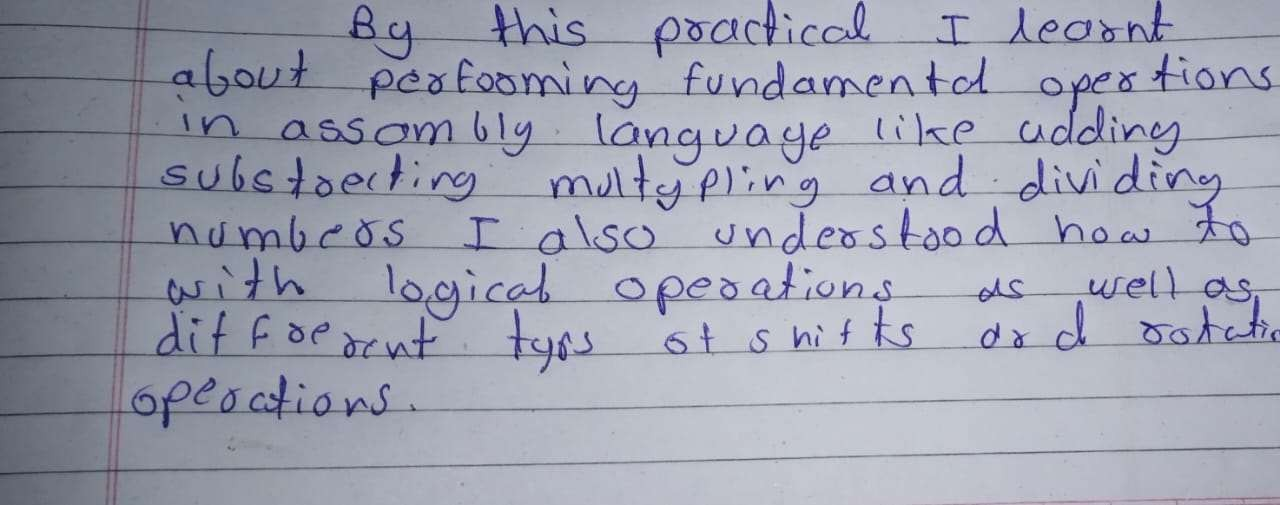 By this practical I learnt
about performing fundamental opertions
in assombly language like adding
substrecting multypling and dividing
numbers I also understood how to
with logical operations as well as
differernt typs of shifts and rotatio
operations.